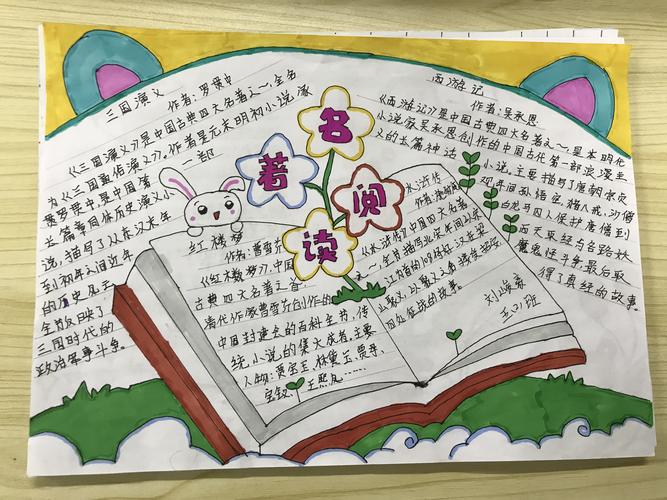 名
著
阅
读
三国演义
作者：罗贯中
《三国演义》是中国古典四大名著之一，全名
为《三国志通俗演义》。作者是元末明初小说家
罗贯中是中国第一部
长篇章回体历史演义小
说，描写了从东汉末年
到西晋初年之间近百年
的历史风云
全部反映了
三国时代的
政治军事斗争。
西游记
作者：吴承恩
《西游记》是中国古典四大名著之一，是由明代
小说家吴承恩创作的中国古代第一部浪漫主
义的长篇神话小说。主要描写了唐朝
年间孙悟空、猪八戒、沙僧
白龙马四人保护唐僧到
西天取经与各路妖
魔鬼怪斗争最后取
得了真经的故事。
红楼梦
作者：曹雪芹
《红楼梦》，中国
古典四大名著之首
清代作家曹雪芹创作的
中国封建社会的百科全书，传
统小说的集大成者，主要
人物：贾宝玉、林黛玉、贾母、
宝钗、王熙凤……
水浒传
作者：施耐庵
《水浒传》中国四大名著
之一，
为首的108好汉在梁
山聚义，以及聚义之后接受招安
四处征战的故事。
五(2)班